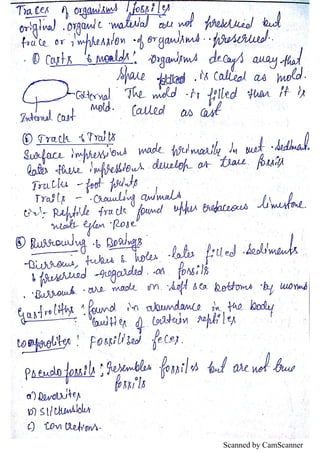 Traces of organisms / fossils
original organic material are not preserved but
trace or impression of organisms preserved.
① Casts & moulds: organisms decays away that
space is called as mold.
External mold.
The mold is filled than it is
called as cast
Internal cast
② Track & Trails
Surface impressions made primarily in wet sediment
later these impressions develop as trace fossils
Tracks - foot prints
Trails - Crawling animals
Ex:- Reptile track found upper cretaceous limestone
near Glen Rose
③ Burrowing & Borings
-Burrows, tubes & holes - later filled - sediments
& preserved - regarded as fossils
·Burrows are made on soft sea bottoms by worms
Gastroliths: found in abundance in the body
cavities of certain reptiles
Coprolites: Fossilised feces.
Pseudofossils: Resembles fossils but are not true
fossils
a) Dendrites
b) Slickensides
c) Concretions.
Scanned by CamScanner